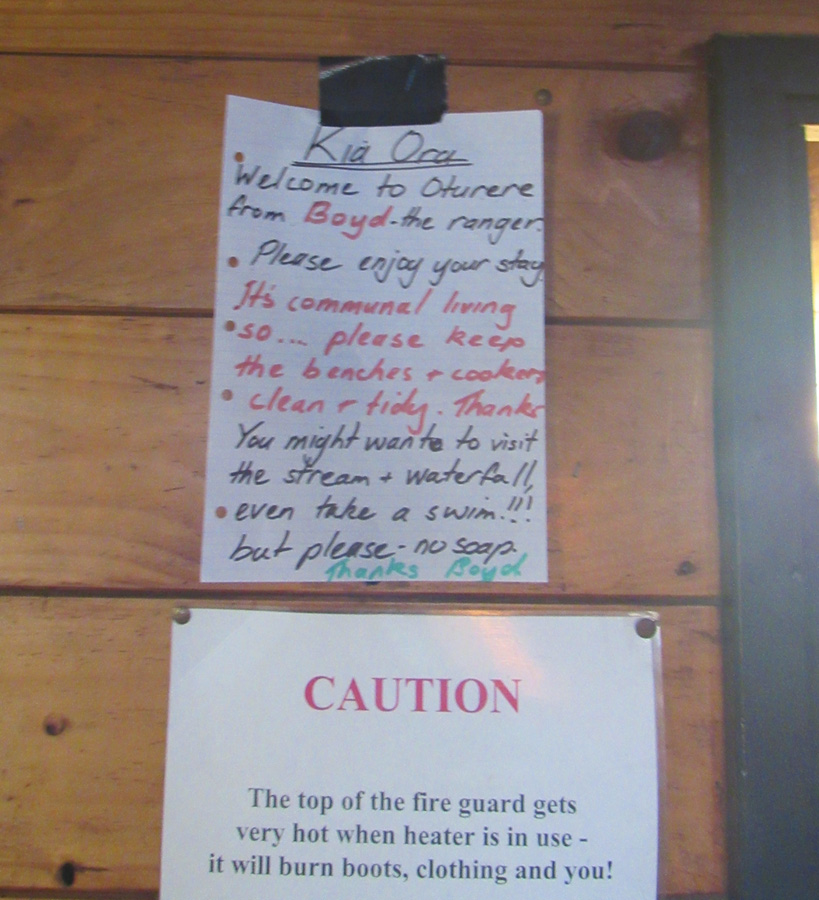 Kia Ora
Welcome to Oturere
from Boyd-the ranger.
Please enjoy your stay
It's communal living
so... please keep
the benches + cookers
clean + tidy. Thanks
You might want to visit
the stream + waterfall,
even take a swim!!!
but please - no soap.
Thanks Boyd
CAUTION
The top of the fire guard gets
very hot when heater is in use -
it will burn boots, clothing and you!